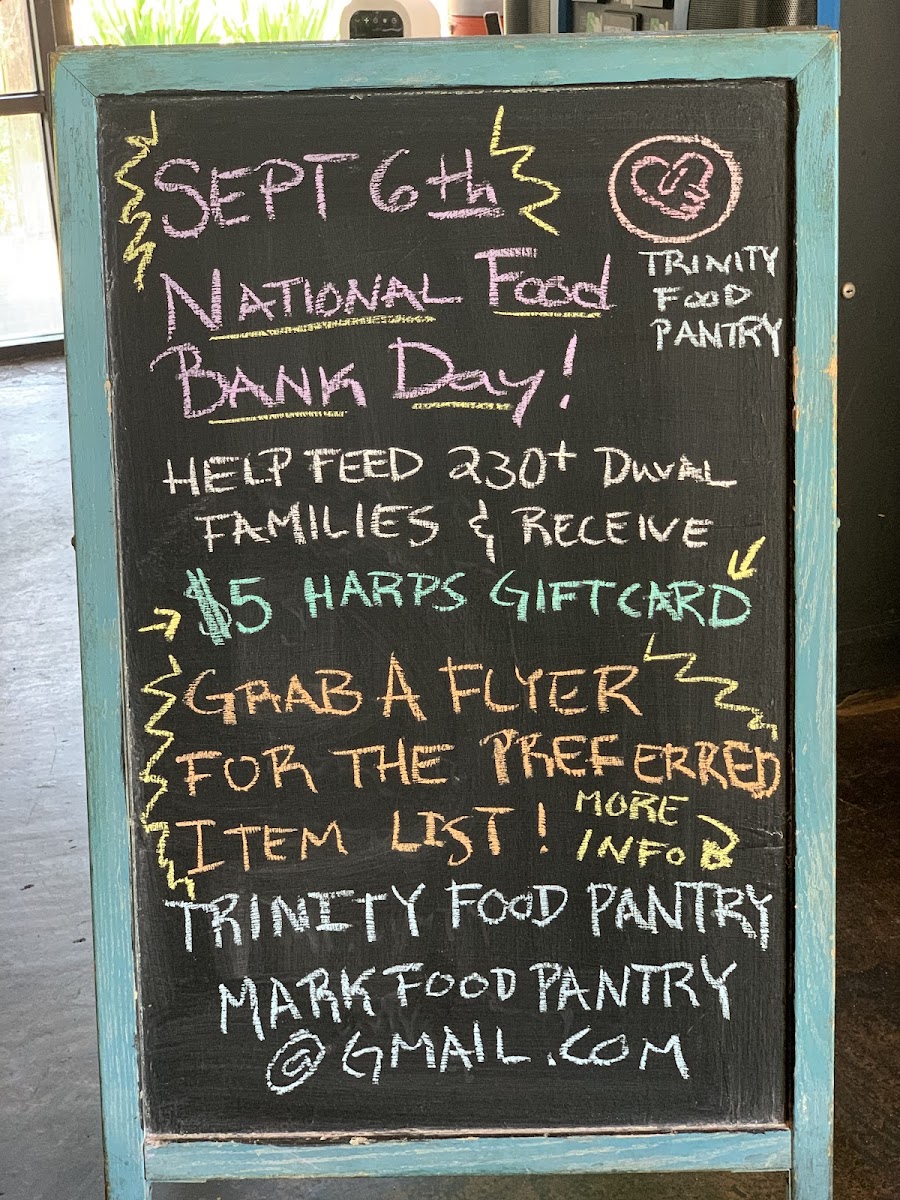 SEPT 6th
NATIONAL FOOD
BANK DAY!
TRINITY
FOOD
PANTRY
HELP FEED 230+ DUVAL
FAMILIES & RECEIVE
$5 HARPS GIFTCARD
GRAB A FLYER
FOR THE PREFERRED
ITEM LIST!
MORE
INFO
TRINITY FOOD PANTRY
MARKFOODPANTRY
@GMAIL.COM